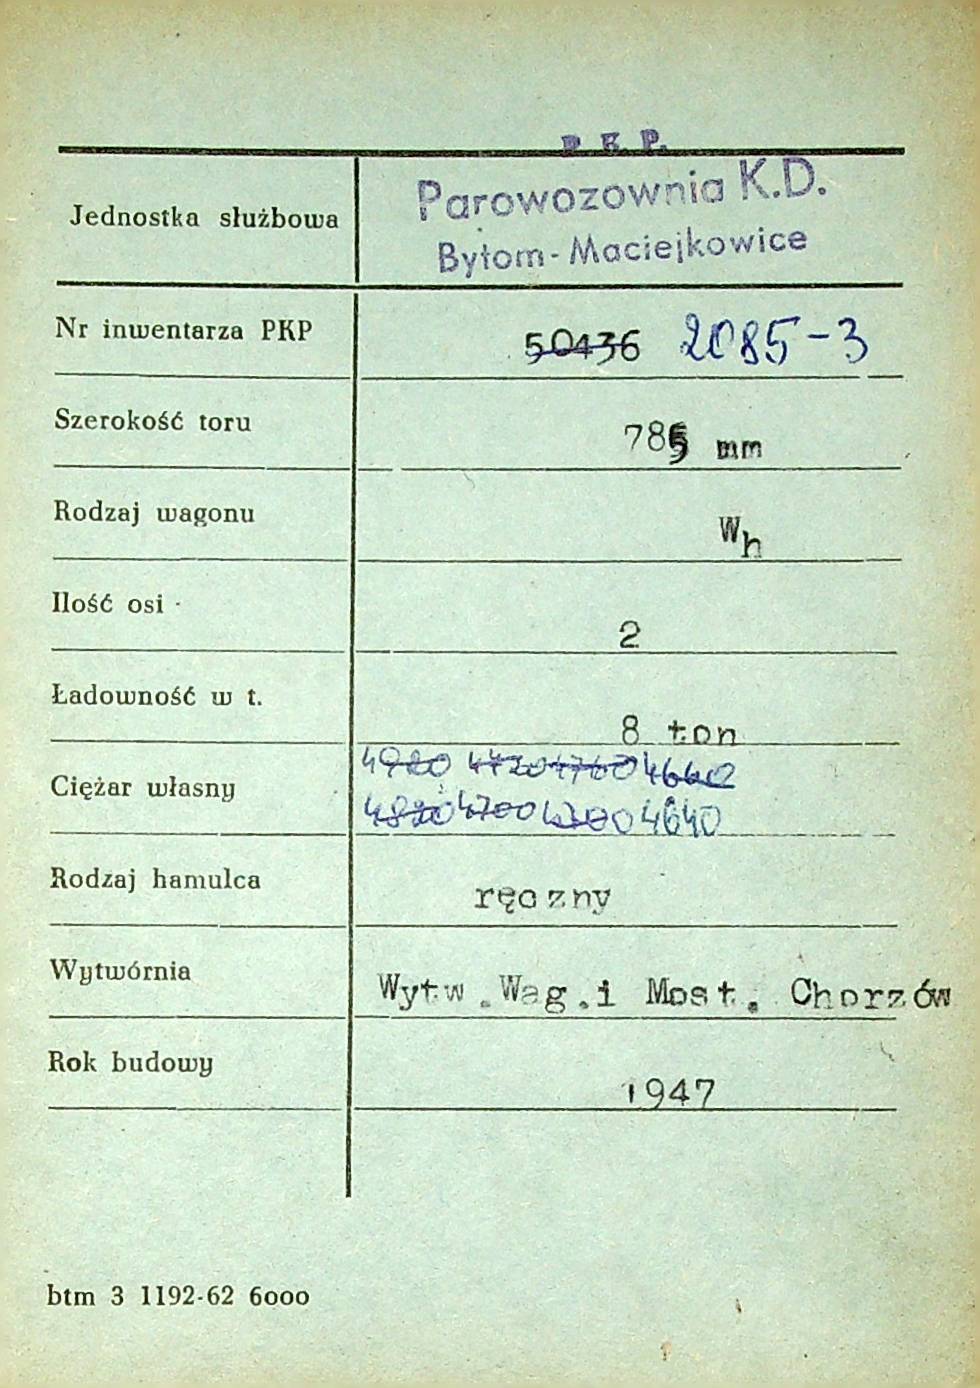 P. K. P.
Parowozownia K.D.
Bytom-Maciejkowice
Jednostka służbowa
Nr inwentarza PKP 50436 2085-3
Szerokość toru 785 mm
Rodzaj wagonu Wh
Ilość osi 2
Ładowność w t. 8 ton
Ciężar własny 4980 4720 4760 4660
4820 4700 4700 4640
Rodzaj hamulca ręczny
Wytwórnia Wytw.Wag.i Most. Chorzów
Rok budowy 1947
btm 3 1192-62 6000